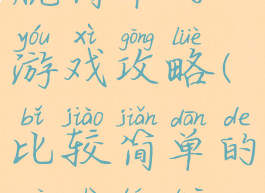 yóu xì gōng lüè
游戏攻略(
bǐ jiào jiǎn dān de
比较简单的